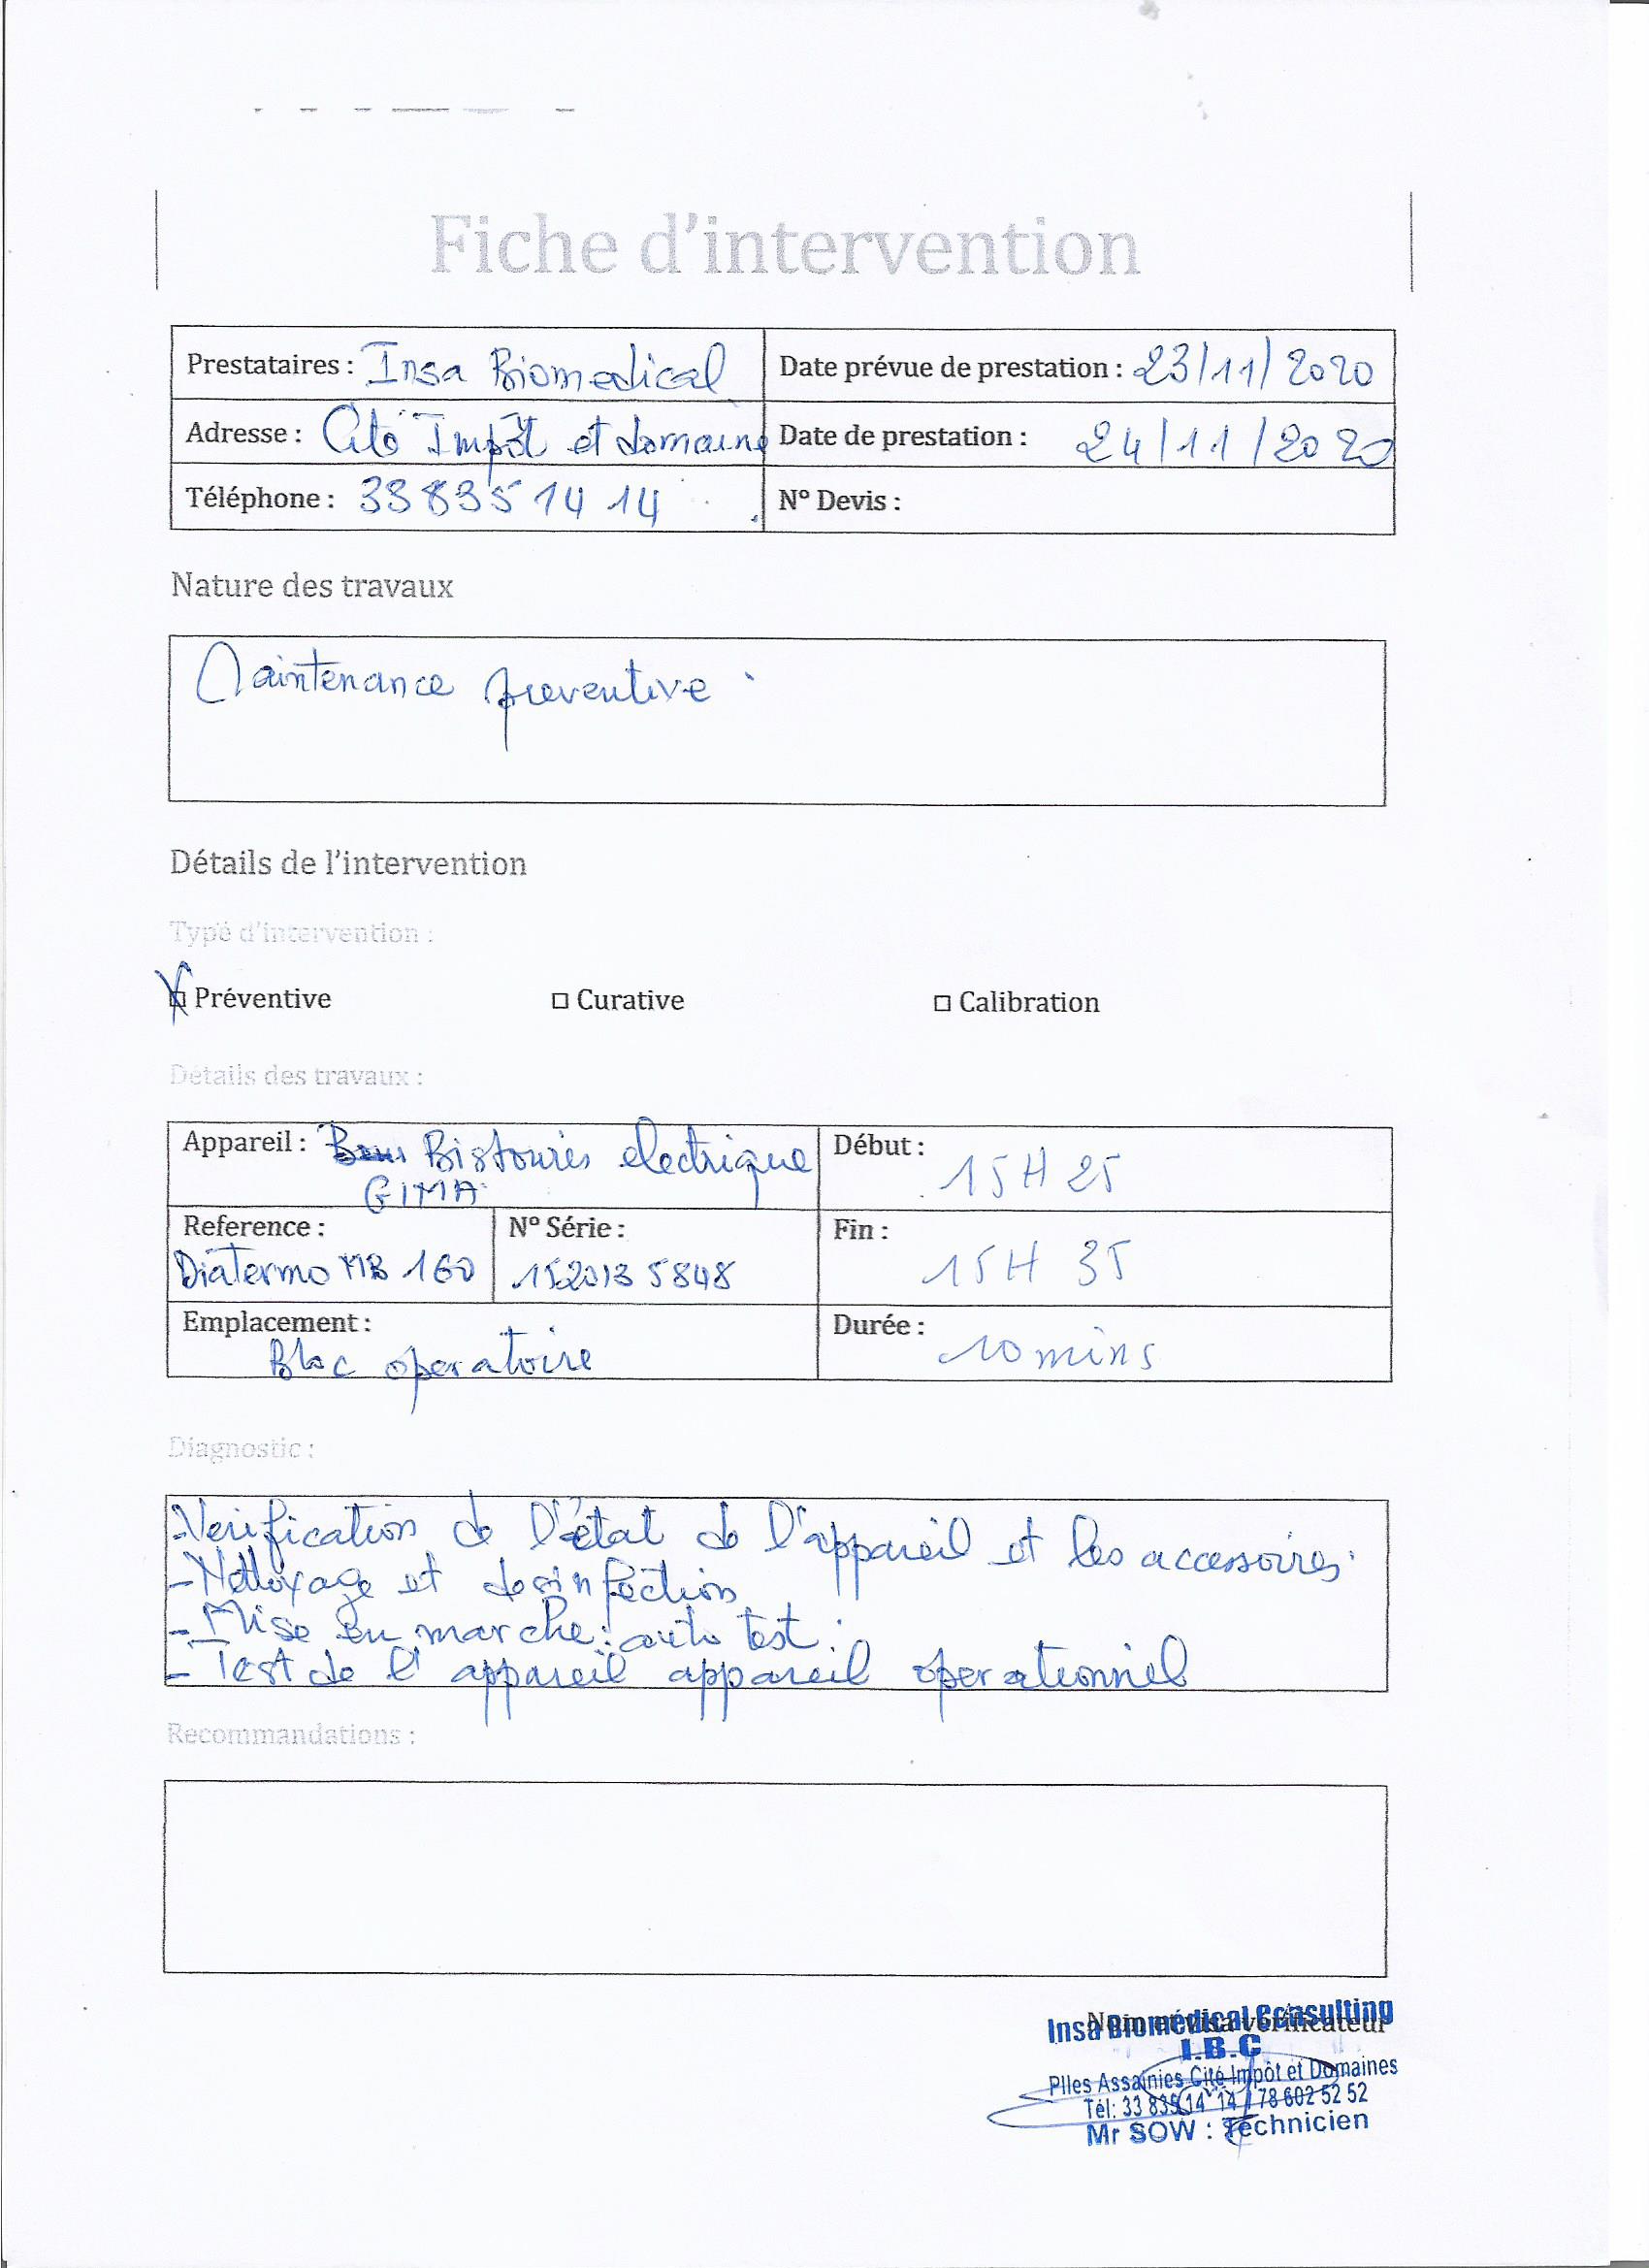 Fiche d'intervention
Prestataires : Insa Biomedical
Date prévue de prestation : 23/11/2020
Adresse : Cité Impôt et domaine
Date de prestation : 24/11/2020
Téléphone : 33 835 14 14
N° Devis :
Nature des travaux
Maintenance preventive
Détails de l'intervention
Type d'intervention :
Préventive
□ Curative
□ Calibration
Détails des travaux :
Appareil : Bistouris electrique
GIMA
Début :
15H 25
Reference :
Diatermo MB 160
N° Série :
1520135848
Fin :
15H 35
Emplacement :
Bloc operatoire
Durée :
10 mins
Diagnostic :
-Verification de l'état de l'appareil et les accessoires.
- Nettoyage et desinfection
- Mise en marche : auto test.
- Test de l'appareil appareil operationnel
Recommandations :
Nom et visa vérificateur
Insa Biomédical Consulting
I.B.C
Plles Assainies Cité Impôt et Domaines
Tél: 33 835 14 14 / 78 602 52 52
Mr SOW : Technicien